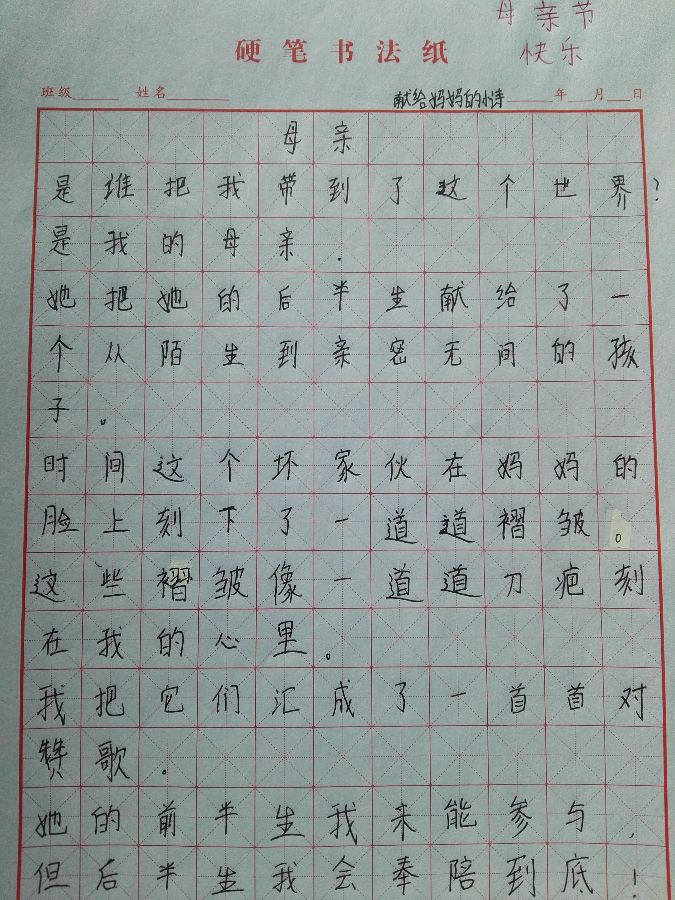 母亲节
快乐
硬笔书法纸
班级 姓名 献给妈妈的小诗 年 月 日
母亲
是谁把我带到了这个世界?
是我的母亲.
她把她的后半生献给了一
个从陌生到亲密无间的孩
子。
时间这个坏家伙在妈妈的
脸上刻下了一道道褶皱。
这些褶皱像一道道刀疤刻
在我的心里。
我把它们汇成了一首首对
赞歌.
她的前半生我未能参与,
但后半生我会奉陪到底!